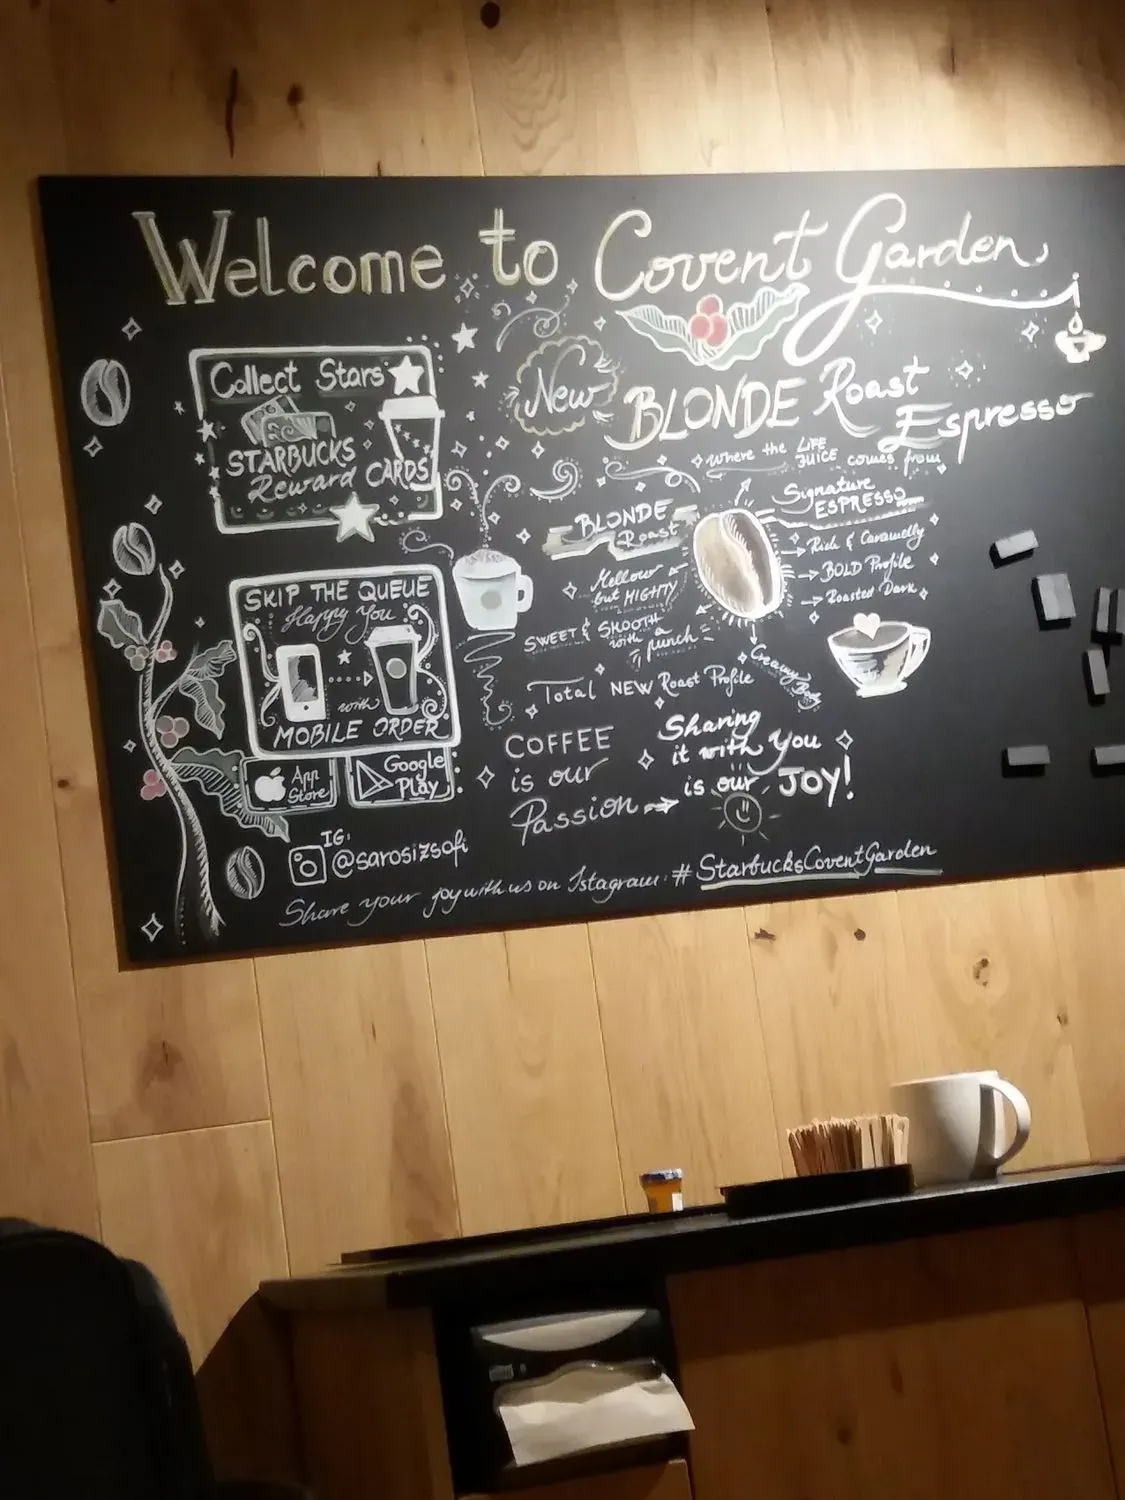 Welcome to Covent Garden
Collect Stars
STARBUCKS
Reward CARDS
New
BLONDE Roast
Espresso
where the LIFE
JUICE comes from
BLONDE
Roast
Mellow
but MIGHTY
SWEET & SMOOTH
with a
punch
Signature
ESPRESSO
Rich & Caramelly
BOLD Profile
Roasted Dark
Creamy Body
Total NEW Roast Profile
SKIP THE QUEUE
Happy You
with
MOBILE ORDER
App
Store
Google
Play
COFFEE
is our
Passion
Sharing
it with you
is our JOY!
IG:
@sarosizsofi
Share your joy with us on Istagram: #StarbucksCoventGarden